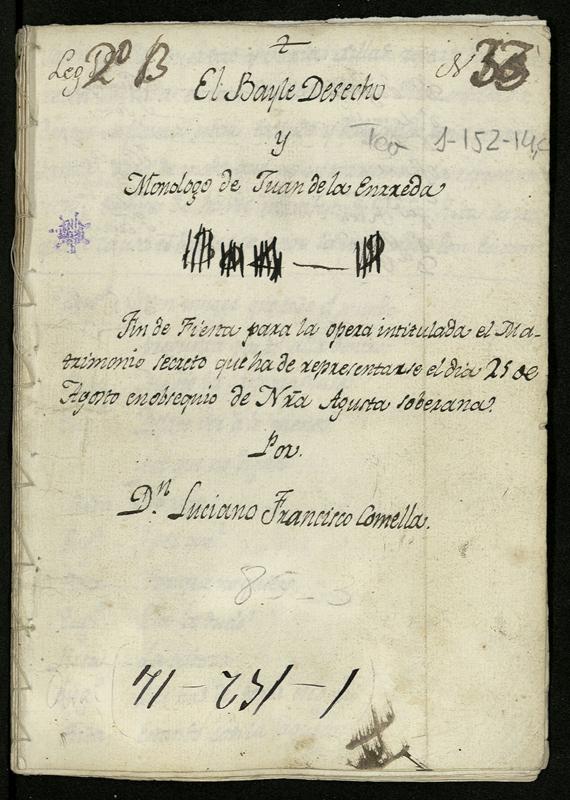 Leg 2º B
N 33
El Bayle Desecho
y
Tea 1-152-14,
Monologo de Juan de la Enrreda
Fin de Fiesta para la opera intitulada el Ma-
trimonio secreto que ha de representarse el dia 25 de
Agosto en obsequio de Nrã Agusta soberana.
Por.
Dn. Luciano Francisco Comella.